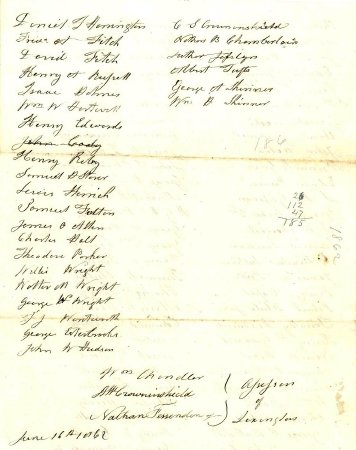 Daniel J Harrington
Fitch
David Fitch
Henry A Russell
Isaac Holmes
Wm W Hartwell
Henry Edwards
John Cody
Henry Riley
Samuel D
Lewis Herrick
Samuel Fulton
James O Allen
Charles Ball
Theodore Parker
Willis Wright
Walter R Wright
George W Wright
J J Wentworth
George Esterbrooks
John W Hudson
C S Crowninshield
Nathan B Chamberlain
Luther Joslyn
Albert Tufts
George A Skinner
Wm B Skinner
186
26
112
47
185
1862
Wm Chandler
AH Crowninshield
Nathan Fessenden Jr
Assessors
of
Lexington
June 16th 1862